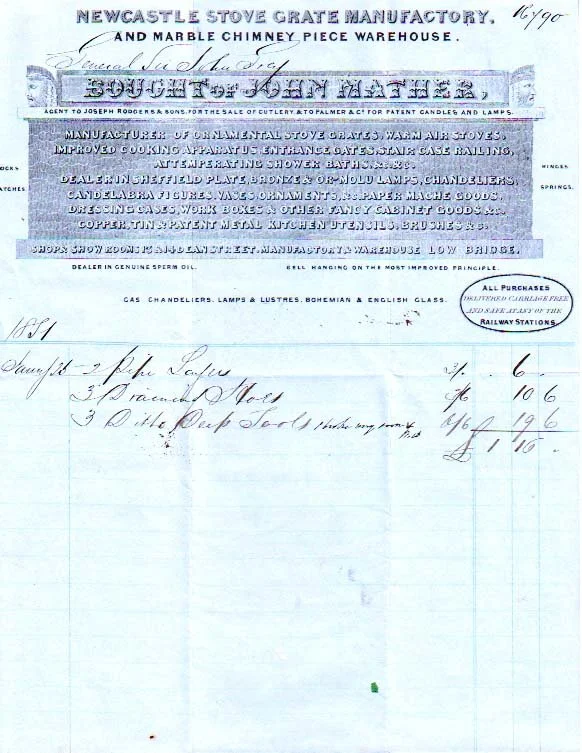 NEWCASTLE STOVE GRATE MANUFACTORY,
AND MARBLE CHIMNEY PIECE WAREHOUSE.
General Sir John
BOUGHT OF JOHN MATHER,
AGENT TO JOSEPH RODGERS & SONS. FOR THE SALE OF CUTLERY. & TO PALMER & Co. FOR PATENT CANDLES AND LAMPS.
MANUFACTURER OF ORNAMENTAL STOVE GRATES, WARM AIR STOVES,
IMPROVED COOKING APPARATUS. ENTRANCE GATES, STAIR CASE RAILING,
ATTEMPERATING SHOWER BATHS, &c. &c.
HINGES
DEALER IN SHEFFIELD PLATE, BRONZE & OR-MOLU LAMPS, CHANDELIERS,
SPRINGS.
CANDELABRA FIGURES, VASES, ORNAMENTS, &c. PAPER MACHE GOODS,
DRESSING CASES, WORK BOXES & OTHER FANCY CABINET GOODS &c.
COPPER, TIN & PATENT METAL KITCHEN UTENSILS, BRUSHES & c.
SHOP & SHOW ROOMS 13 & 14 DEAN STREET. MANUFACTORY & WAREHOUSE LOW BRIDGE.
DEALER IN GENUINE SPERM OIL. BELL HANGING ON THE MOST IMPROVED PRINCIPLE.
GAS CHANDELIERS, LAMPS & LUSTRES, BOHEMIAN & ENGLISH GLASS.
ALL PURCHASES
DELIVERED CARRIAGE FREE
AND SAFE AT ANY OF THE
RAILWAY STATIONS.
1851
2 Pipe 3/. 6 .
3 Diamond 3/6 10 6
3 Ditto Deep 6/6 19 6
£ 1 16 .